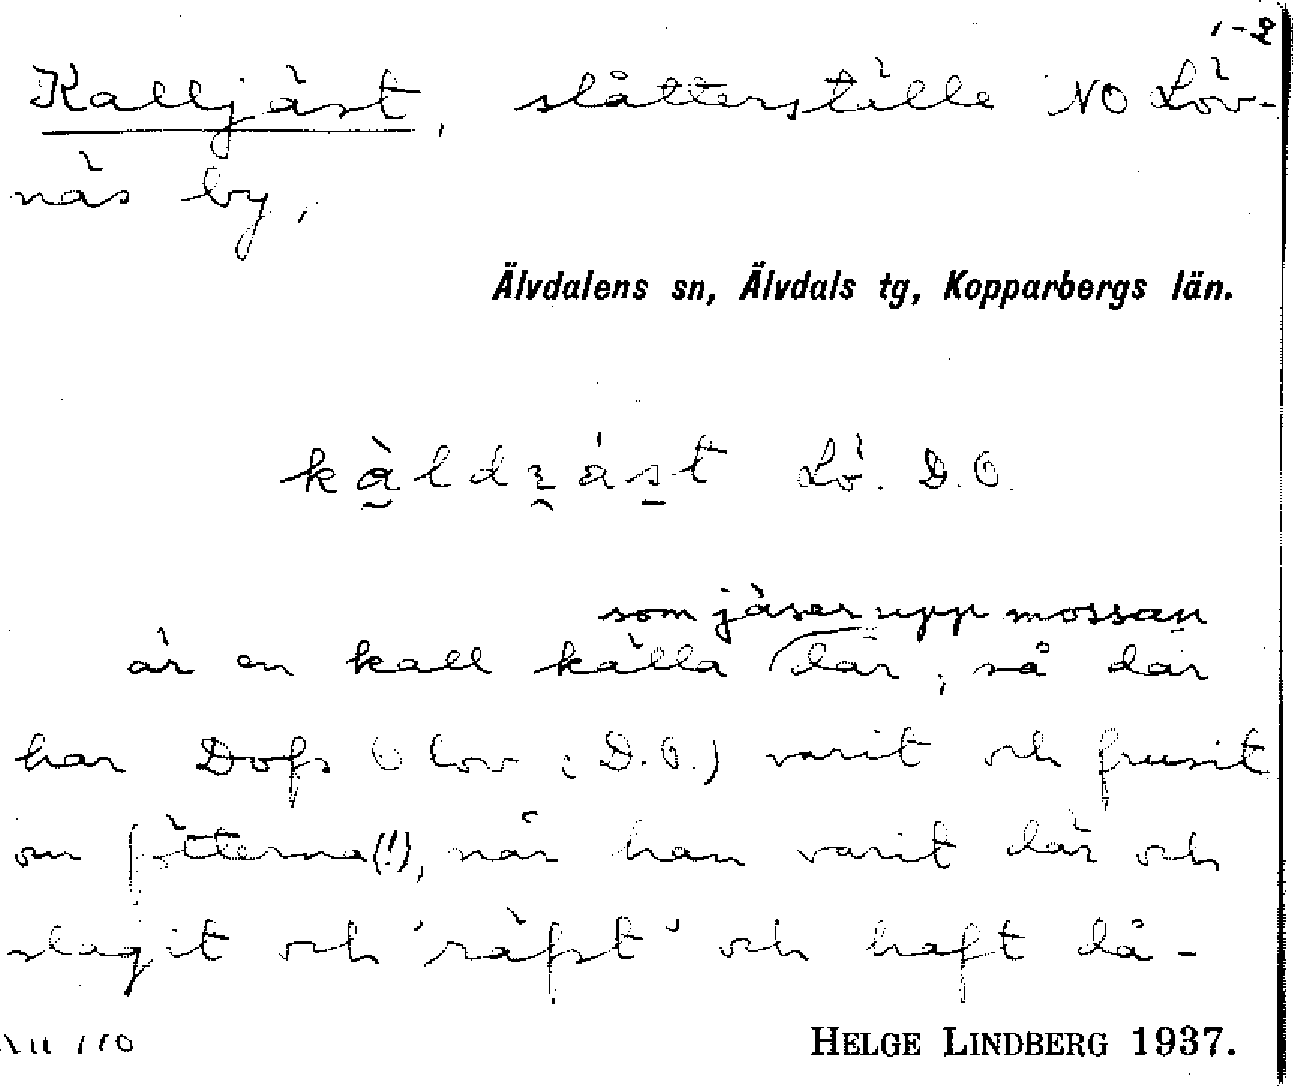 1-2
Kalljäst, slåtterställe NO Löv-
näs by,
Älvdalens sn, Älvdals tg, Kopparbergs län.
kàldʒást Lö. D.O.
som jäser upp mossan
är en kall källa där, så där
har Dofs Olov (: D.O.) varit och frusit
om fötterna(!), när han varit där och
slagit och 'räfst' och haft då-
HELGE LINDBERG 1937.